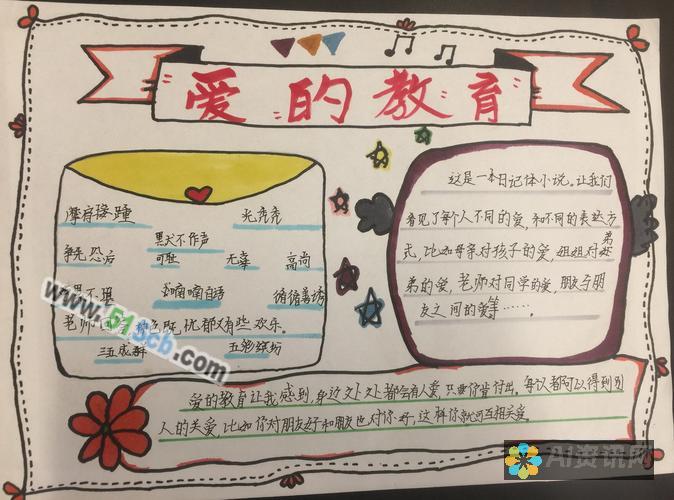 爱的教育
摩肩接踵 光秃秃
默不作声
争先恐后 可耻 无辜 高尚
喃喃自语 循循善诱
老师 忧郁又有些欢乐。
三五成群 五彩缤纷
这是一本日记体小说。让我们
看见了每个人不同的爱,和不同的表达方
式,比如母亲对孩子的爱,姐姐对弟
弟的爱,老师对同学的爱,朋友与朋
友之间的爱等……。
爱的教育让我感到,身边处处都会有人爱,只要你肯付出。每次都可以得到别
人的关爱,比如你对朋友好和朋友也对你好,这样你就可互相关爱。
www.51scb.com
AI资讯网